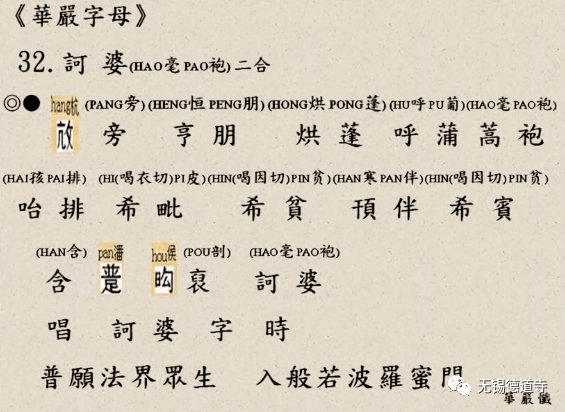 《華嚴字母》
32.訶 婆(HAO毫 PAO袍)二合
◎● hang杭 (PANG旁)(HENG恒 PENG朋)(HONG烘 PONG蓬)(HU呼 PU葡)(HAO毫 PAO袍)
旁 亨 朋 烘 蓬 呼 蒲 蒿 袍
(HAI孩 PAI排) (HI(喝衣切)PI皮)(HIN(喝因切)PIN貧)(HAN寒 PAN伴)(HIN(喝因切)PIN貧)
咍 排 希 毗 希 貧 頇 伴 希 賓
(HAN含) pan潘 hou侯 (POU剖) (HAO毫 PAO袍)
含 裒 訶 婆
唱 訶 婆 字 時
普願法界眾生 入般若波羅蜜門
无锡德道寺
華嚴懺